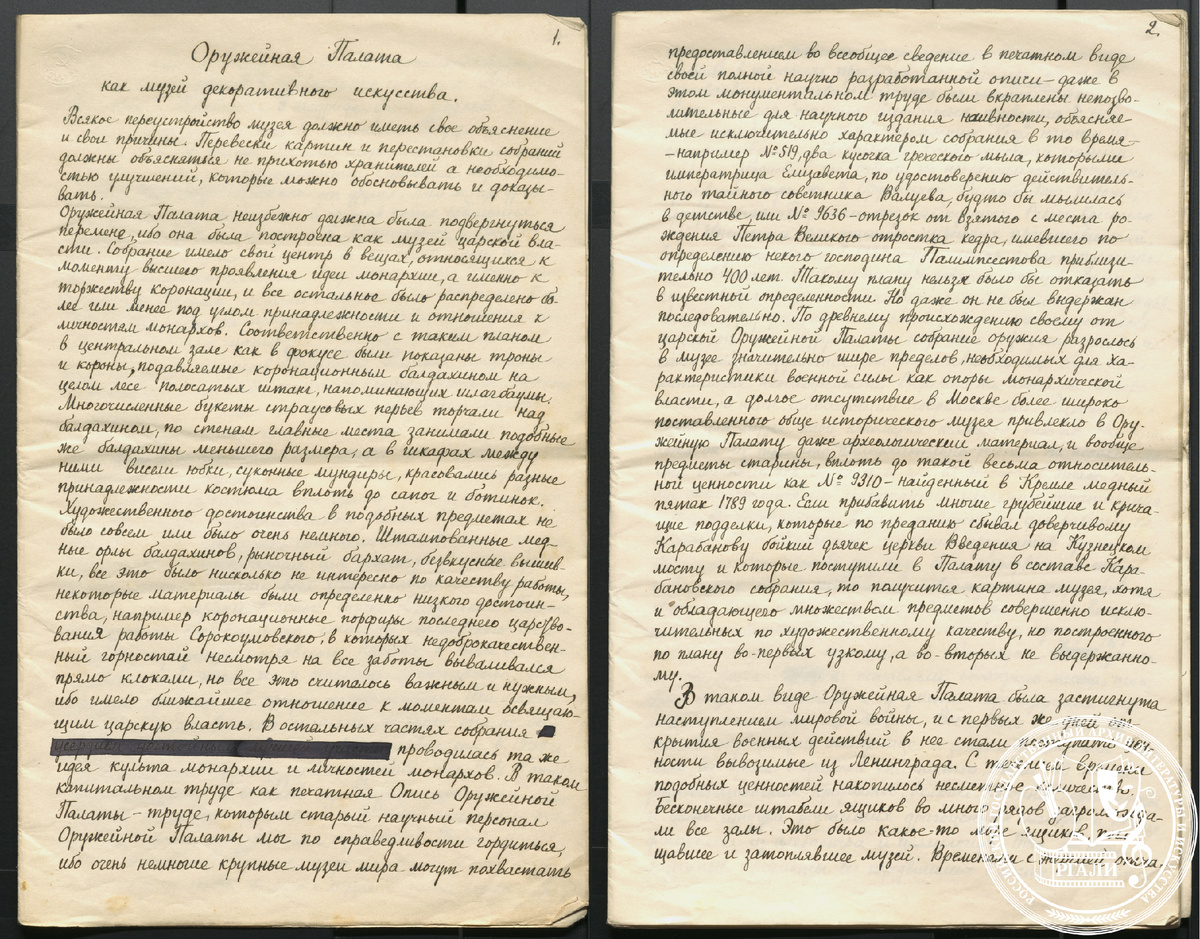 1.
Оружейная Палата
как музей декоративного искусства.
Всякое переустройство музея должно иметь свое объяснение
и свои причины. Перевески картин и перестановки собраний
должны объясняться не прихотью хранителей а необходимо-
стью улучшений, которые можно обосновывать и доказы-
вать.
Оружейная Палата неизбежно должна была подвергнуться
перемене, ибо она была построена как музей царской вла-
сти. Собрание имело свой центр в вещах, относящихся к
моменту высшего проявления идеи монархии, а именно к
торжеству коронации, и все остальное было распределено бо-
лее или менее под углом принадлежности и отношения к
личностям монархов. Соответственно с таким планом
в центральном зале как в фокусе были показаны троны
и короны, подавляемые коронационным балдахином на
целом лесе полосатых штанг, напоминающих шлагбаумы.
Многочисленные букеты страусовых перьев торчали над
балдахином, по стенам главные места занимали подобные
же балдахины меньшего размера, а в шкафах между
ними висели юбки, суконные мундиры, красовались разные
принадлежности костюма вплоть до сапог и ботинок.
Художественного достоинства в подобных предметах не
было совсем или было очень немного. Штампованные мед-
ные орлы балдахинов, рыночный бархат, безвкусные вышив-
ки, все это было нисколько не интересно по качеству работы,
некоторые материалы были определенно низкого достоин-
ства, например коронационные порфиры последнего царство-
вания работы Сорокоумовского, в которых недоброкачествен-
ный горностай несмотря на все заботы вываливался
прямо клоками, но все это считалось важным и нужным,
ибо имело ближайшее отношение к моментам освящаю-
щим царскую власть. В остальных частях собрания
проводилась та же
идея культа монархии и личностей монархов. В таком
капитальном труде как печатная Опись Оружейной
Палаты – труде, которым старый научный персонал
Оружейной Палаты мог по справедливости гордиться,
ибо очень немногие крупные музеи мира могут похвастать
2.
предоставлением во всеобщее сведение в печатном виде
своей полной научно разработанной описи – даже в
этом монументальном труде были вкраплены непозво-
лительные для научного издания наивности, объясняе-
мые исключительно характером собрания в то время –
– например № 519, два кусочка греческого мыла, которыми
императрица Елизавета, по удостоверению действитель-
ного тайного советника Валуева, будто бы мылилась
в детстве, или № 9636 – отрезок от взятого с места ро-
ждения Петра Великого отростка кедра, имевшего по
определению некого господина Палимпсестова приблизи-
тельно 400 лет. Такому плану нельзя было бы отказать
в известной определенности. Но даже он не был выдержан
последовательно. По древнему происхождению своему от
царской Оружейной Палаты собрание оружия разрослось
в музее значительно шире пределов, необходимых для ха-
рактеристики военной силы как опоры монархической
власти, а долгое отсутствие в Москве более широко
поставленного обще исторического музея привлекло в Ору-
жейную Палату даже археологический материал, и вообще
предметы старины, вплоть до такой весьма относитель-
ной ценности как № 9310 – найденный в Кремле медный
пятак 1789 года. Если прибавить многие грубейшие и крича-
щие подделки, которые по преданию сбывал доверчивому
Карабанову бойкий дьячек церкви Введения на Кузнецком
мосту и которые поступили в Палату в составе Кара-
бановского собрания, то получится картина музея, хотя
и обладающего множеством предметов совершенно исклю-
чительных по художественному качеству, но построенного
по плану во-первых узкому, а во-вторых не выдержанно-
му.
В таком виде Оружейная Палата была застигнута
наступлением мировой войны, и с первых же дней от-
крытия военных действий в нее стали поступать цен-
ности вывозимые из Ленинграда. С течением времени
подобных ценностей накопилось несметное количество.
Бесконечные штабели ящиков во много рядов загромозда-
ли все залы. Это было какое-то море ящиков,
щавшее и затоплявшее музей. Временами с
РОССИЙСКИЙ ГОСУДАРСТВЕННЫЙ АРХИВ ЛИТЕРАТУРЫ И ИСКУССТВА
РГАЛИ